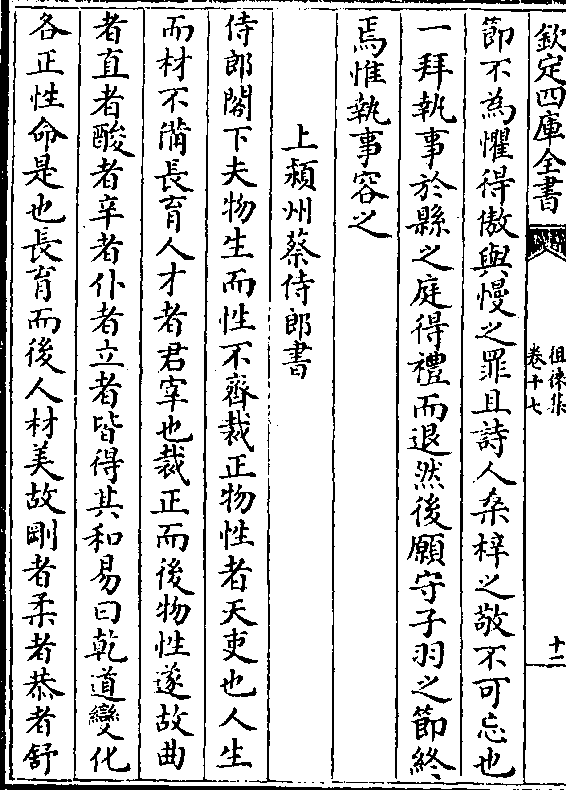 欽定四庫全書
徂徠集
卷十七
十二
節不為懼得傲與慢之罪且詩人桑梓之敬不可忘也
一拜執事於縣之庭得禮而退然後願守子羽之節終
焉惟執事容之
上潁州蔡侍郎書
侍郎閣下夫物生而性不齊裁正物性者天吏也人生
而材不備長育人才者君宰也裁正而後物性遂故曲
者直者酸者辛者仆者立者皆得其和易曰乾道變化
各正性命是也長育而後人材美故剛者柔者恭者舒